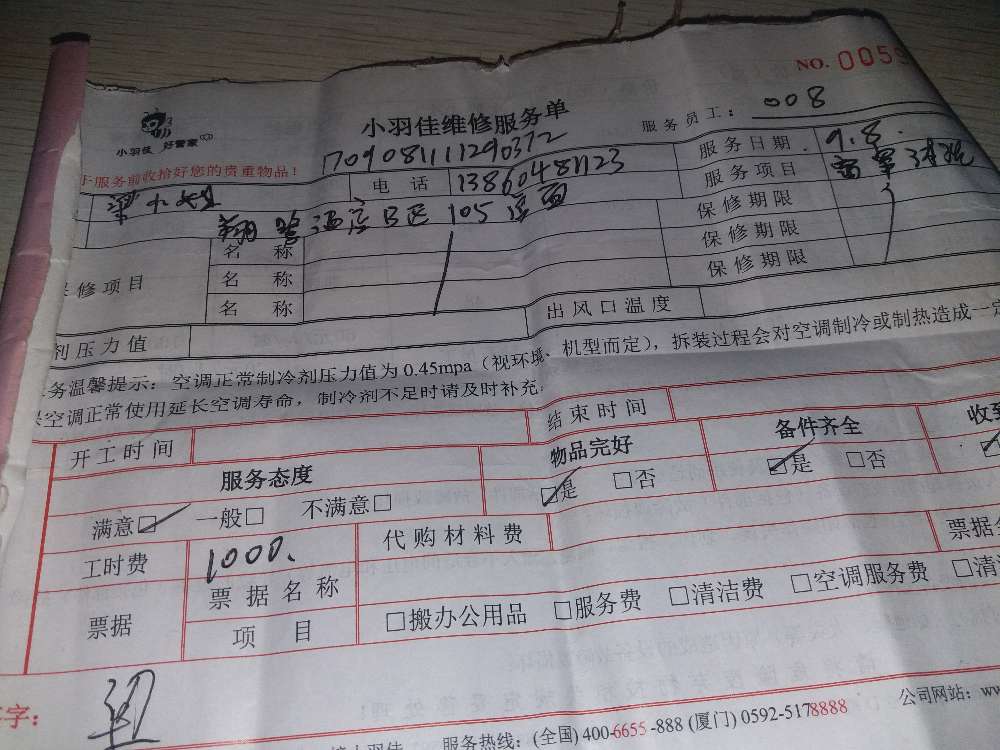 NO. 0059
小羽佳 好管家
小羽佳维修服务单
服务员工: 008
170908111290372
服务日期 9.8.
于服务前收拾好您的贵重物品!
电话 13860481123
服务项目
梁小姐
酒店B区105店面
保修期限
保修期限
保修期限
保修项目
名称
名称
名称
剂压力值
出风口温度
务温馨提示: 空调正常制冷剂压力值为0.45mpa(视环境、机型而定), 拆装过程会对空调制冷或制热造成一定
空调正常使用延长空调寿命, 制冷剂不足时请及时补充
开工时间
结束时间
服务态度
物品完好
备件齐全
收到
满意□ 一般□ 不满意□
□是 □否
□是 □否
工时费 1000.
代购材料费
票据
票据名称
票据金
项目
□搬办公用品 □服务费 □清洁费 □空调服务费 □清
字:
服务热线: (全国) 400-6655-888 (厦门) 0592-5178888
公司网站: ww